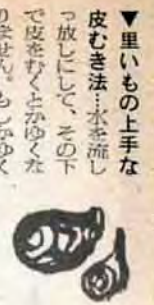 ▼里いもの上手な
皮むき法…水を流し
っ放しにして、その下
で皮をむくとかゆくな
りません。もしかゆく